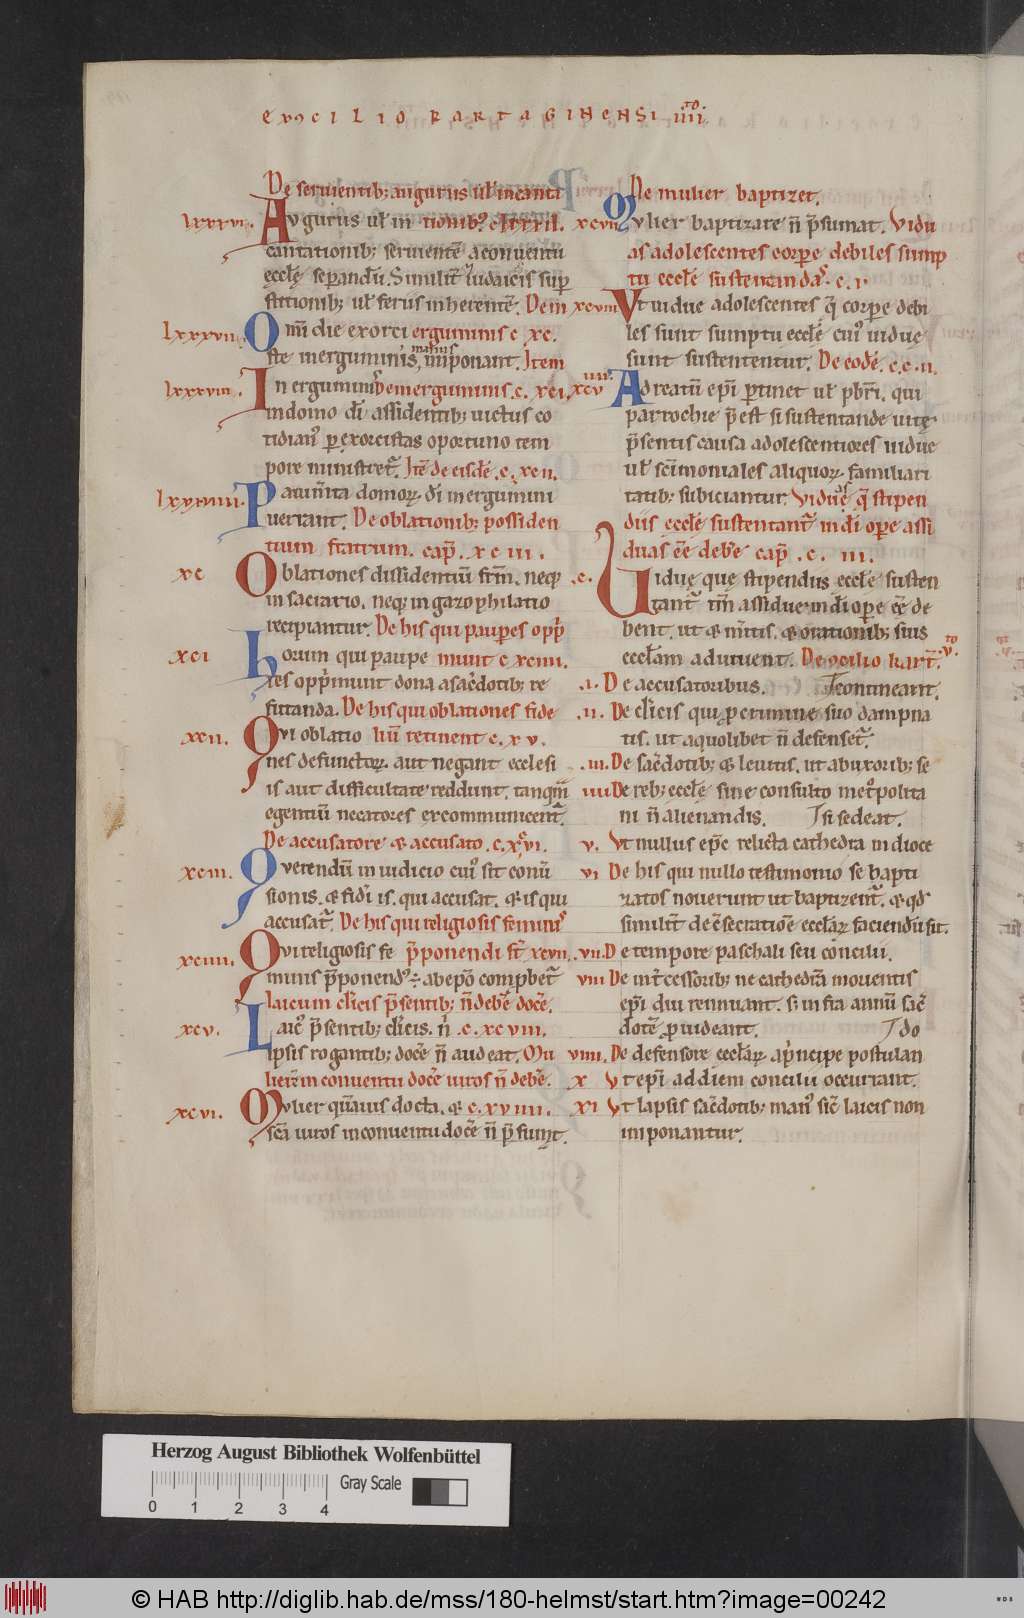 EX ɔCILIO KARTAGINENSI IIII. TO
De seruientib; auguriis ul' incanta
lxxxvi. Avguriis ul' in tionib;
cantationib; seruientē a conuentu
ęccłę sepandū. Similit̄ Iudaicis sup
stitionib; ul' feriis inherentē. De in
lxxxvii. Om̄i die exorci erguminis c. xc.
ste inerguminis, manus imponant. Item
lxxxviii. In erguminis de inerguminis. c. xci.
in domo dī assidentib; uictus co
tidian' p exorcistas oportuno tem
pore ministret̄. Itē de eisdē. c. xcii.
lxxxviiii. Pauim̄ta domoꝝ dī inergumini
uerrant. De oblationib; possiden
tium fratrum. cap̄. xciii.
xc Oblationes dissidentiū frm̄. neq;
in sacrario. neq; in gazophilatio
recipiantur. De his qui paupes opp̄
xci horum qui paupe munt c. xciiii.
res opp̄munt dona a sac̄dotib; re
futanda. De his qui oblationes fide
xcii. Qvi oblatio liū retinent c. xcv.
nes defunctoꝝ. aut negant ecclesi
is aut difficultate reddunt. tanq̄m
egentiū necatores excommunicent̄.
De accusatore & accusato. c. xcvi.
xciii. Qverendū in iudicio cui' sit conū
sionis. & fidi is. qui accusat. & is qui
accusat̄. De his qui religiosis feminis
xciiii. Qvi religiosis fe p̄ponendi st̄ xcvii.
minis p̄ponend' ÷ ab ep̄o compbet̄
laicum cl̄icis p̄sentib; n̄ debē docē.
xcv. Laic' p̄sentib; cl̄icis. n̄ .c. xcviii.
ipsis rogantib; docē n̄ audeat. Mu
lierē in conuentu docē uiros n̄ debē.
xcvi. Mvlier q̄muis docta. & c. xcviiii.
sc̄a uiros in conuentu docē n̄ p̄sumt.
Ne mulier baptizet.
xcvii Mvlier baptizare n̄ p̄sumat. Vidu
as adolescentes corpe debiles sump
tu ecclē sustentandas. c. i
xcviii Vt uidue adolescentes q̄ corpe debi
les sunt sumptu ecclē cui' uidue
sunt sustententur. De eodē. c. c. ii.
xcviiii. Ad reatū ep̄i ptinet ul' pbr̄i. qui
parrochie p̄est si sustentande uitę
p̄sentis causa adolescentiores uidue
ul' sc̄imoniales alicuoꝝ familiari
tatib; subiciantur. Viduas q̄ stipen
diis ecclē sustentant̄ in dī ope assi
duas eē debē cap̄. c. iii.
.c. Viduę quę stipendiis ecclē susten
tant̄ tm̄ assidue in dī ope eē de
bent. ut & m̄itis. & orationib; suis
eccl̄am adiuuent. De ɔcilio kart̄. v. to
.i. De accusatoribus. contineant.
.ii. De cl̄icis qui p crimine suo dampna
tis. ut a quolibet n̄ defenset̄.
.iii. De sac̄dotib; & leuitis. ut ab uxorib; se
iiii De reb; ecclē sine consulto met'polita
ni n̄ alienandis. si sedeat.
v. Vt nullus ep̄c relicta cathedra in dioce
vi De his qui nullo testimonio se bapti
zatos nouerunt ut baptizent̄. & qd̄
similit̄ de ɔsecratiōe eccl̄aꝝ faciendū sit.
.vii. De tempore paschali seu concilii.
viii De int̄cessorib; ne cathedrā mouentis
ep̄i qui rennuant. s; infra annū sac̄
dotē puideant. do
viiii. De defensore eccl̄aꝝ a p̄ncipe postulan
x Vt ep̄i ad diem concilii occurrant.
xi Vt lapsis sac̄dotib; man' sic̄ laicis non
imponantur.
Herzog August Bibliothek Wolfenbüttel
Gray Scale
0 1 2 3 4
© HAB http://diglib.hab.de/mss/180-helmst/start.htm?image=00242